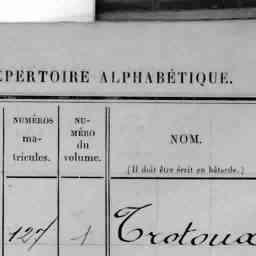 ÉPERTOIRE ALPHABÉTIQUE.
NUMÉROS
ma-
tricules.
NU-
MÉRO
du
volume.
NOM.
(Il doit être écrit en bâtarde.)
127 1 Trotoux